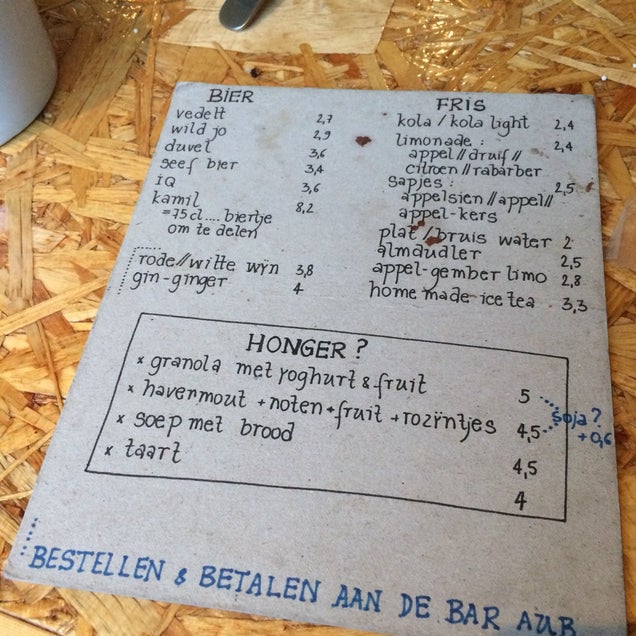 BIER
vedett 2,7
wild jo 2,9
duvel 3,6
seef bier 3,4
iQ 3,6
kamil 8,2
=75cl....biertje
om te delen
rode//witte wijn 3,8
gin-ginger 4
FRIS
kola / kola light 2,4
limonade : 2,4
appel // druif //
citroen // rabarber
sapjes : 2,5
appelsien // appel //
appel-kers
plat // bruis water 2
almdudler 2,5
appel-gember limo 2,8
home made ice tea . 3,3
HONGER ?
x granola met yoghurt & fruit 5
x havermout + noten + fruit + rozijntjes 4,5
soja ?
+0,6
x soep met brood 4,5
x taart 4
BESTELLEN & BETALEN AAN DE BAR AUB